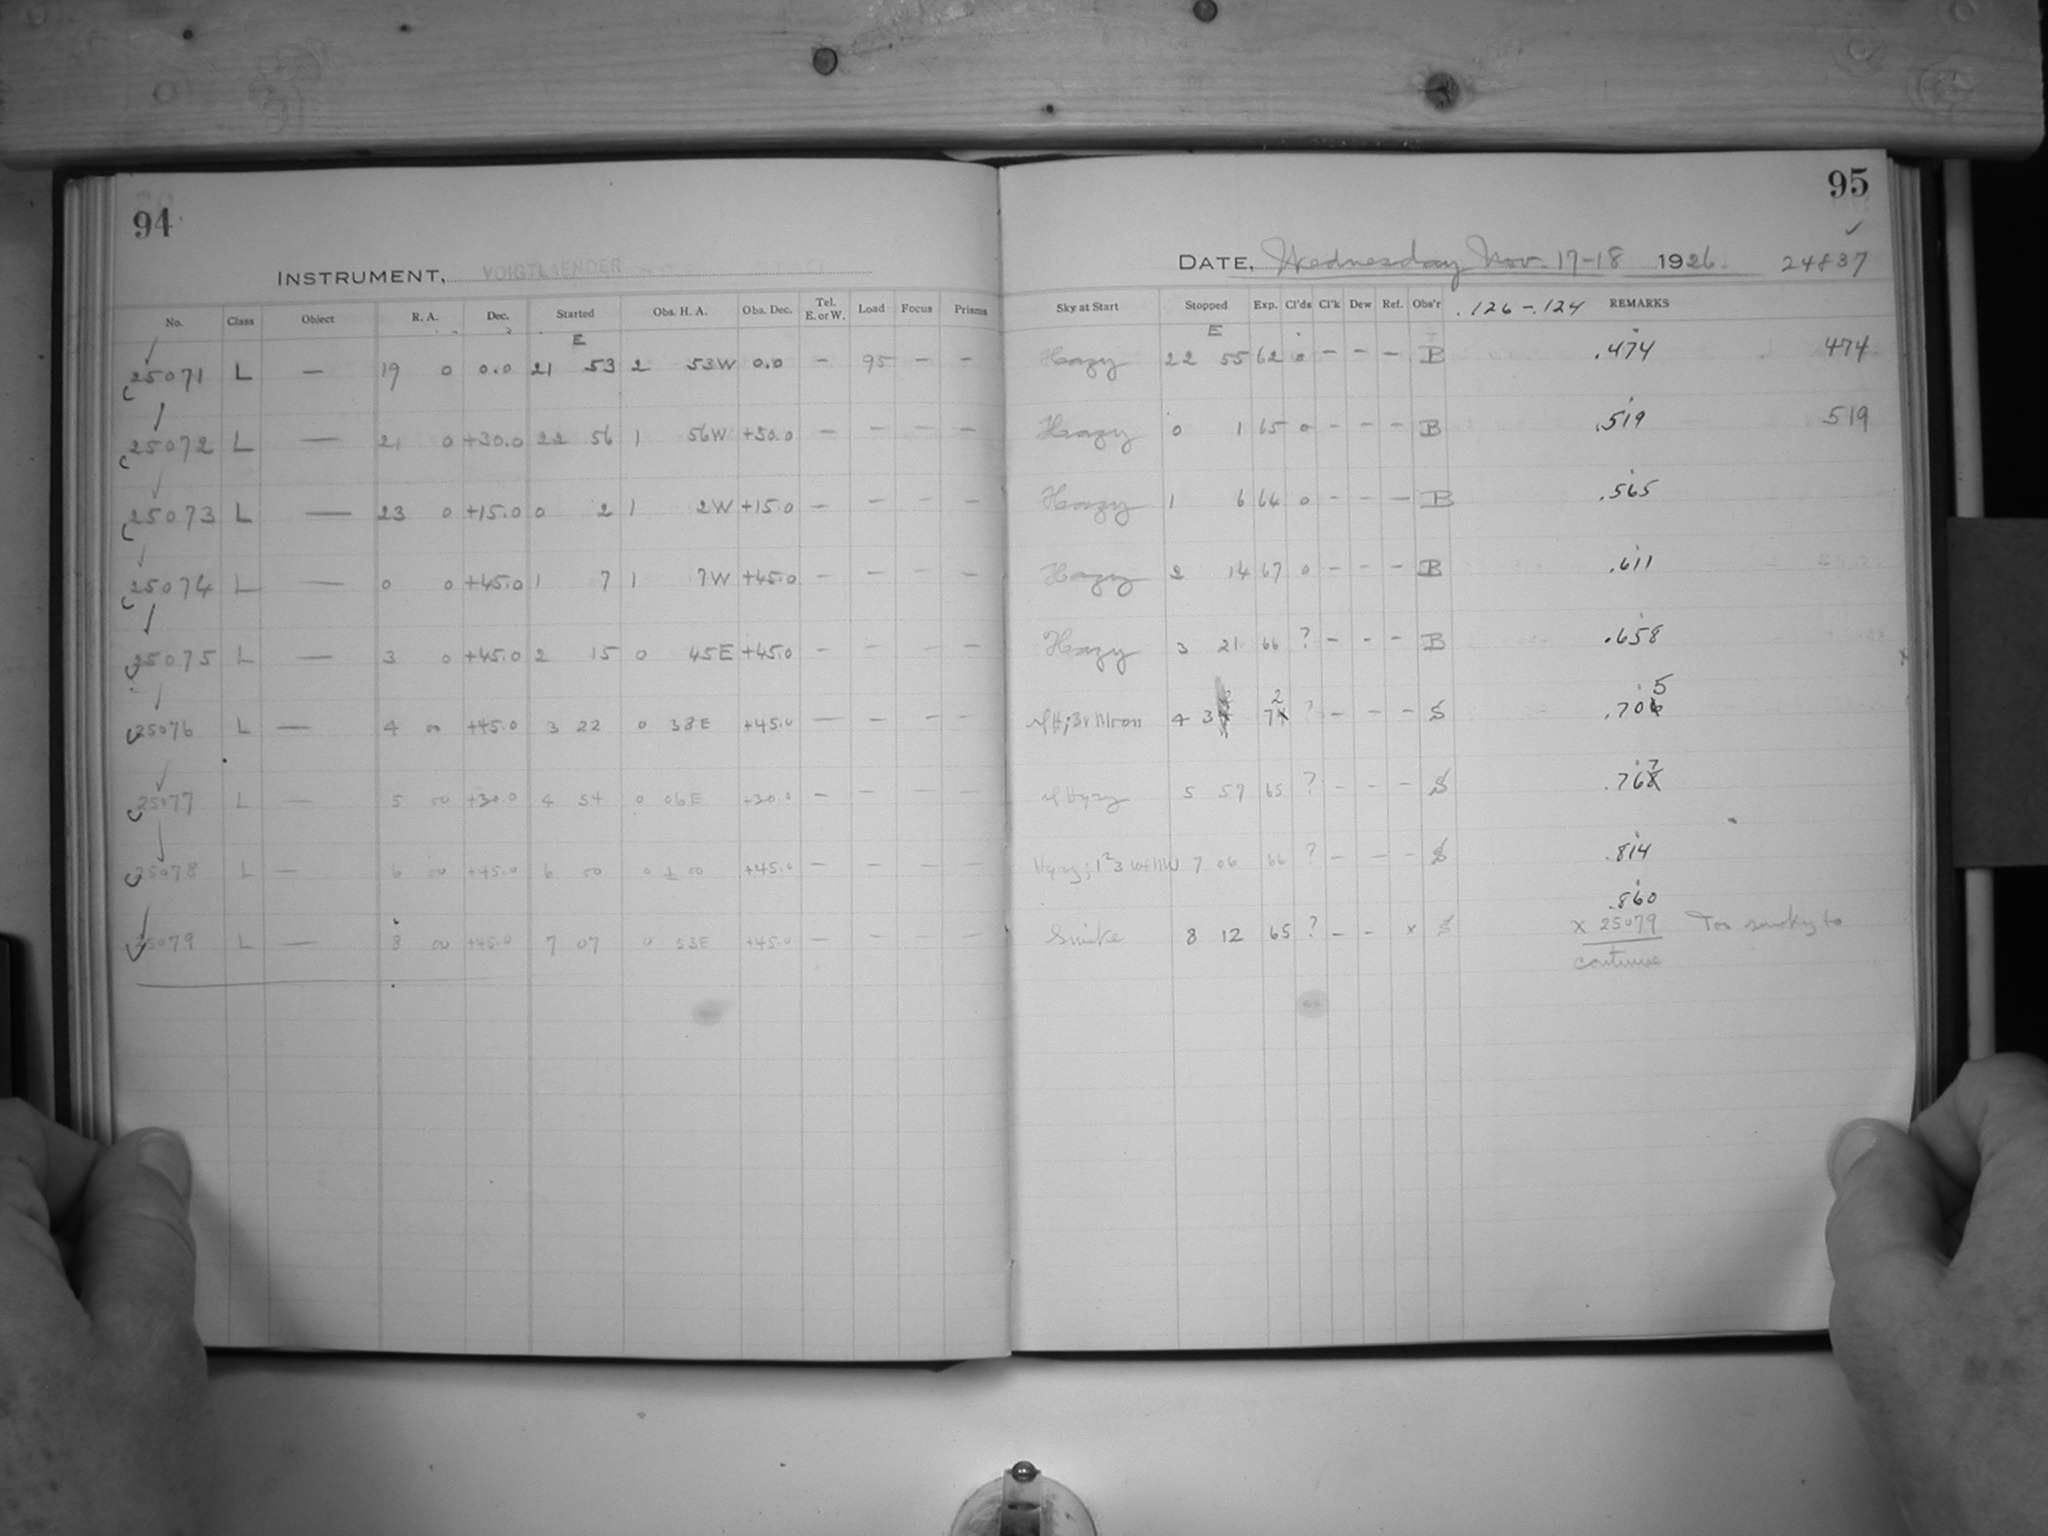 94
INSTRUMENT, VOIGTLAENDER
No. Class Object R. A. Dec. Started Obs. H. A. Obs. Dec. Tel. E. or W. Load Focus Prisms
E
25071 L — 19 0 0.0 21 53 2 53W 0.0 — 95 — —
25072 L — 21 0 +30.0 22 56 1 56W +30.0 — — — —
25073 L — 23 0 +15.0 0 2 1 2W +15.0 — — — —
25074 L — 0 0 +45.0 1 7 1 7W +45.0 — — — —
25075 L — 3 0 +45.0 2 15 0 45E +45.0 — — — —
25076 L — 4 00 +45.0 3 22 0 38E +45.0 — — — —
25077 L — 5 00 +30.0 4 54 0 06E +30.0 — — — —
25078 L — 6 00 +45.0 6 00 0 ± 00 +45.0 — — — —
25079 L — 8 00 +45.0 7 07 0 53E +45.0 — — — —
95
DATE, Wednesday Nov. 17-18 1926. 24837
Sky at Start Stopped Exp. Cl'ds Cl'k Dew Ref. Obs'r .126 - .124 REMARKS
E
Hazy 22 55 62 0 — — — B .474 474
Hazy 0 1 65 0 — — — B .519 519
Hazy 1 6 64 0 — — — B .565
Hazy 2 14 67 0 — — — B .611
Hazy 3 21 66 ? — — — B .658
Moon 4 3 72 ? — — — S .705
5 59 65 ? — — — S .767
7 06 66 ? — — — S .814
.860
Smoke 8 12 65 ? — — x S x 25079 Too smoky to
continue